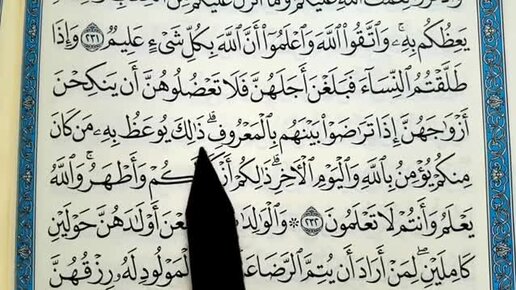 يَعِظُكُم بِهِۦۚ وَٱتَّقُوا۟ ٱللَّهَ وَٱعْلَمُوٓا۟ أَنَّ ٱللَّهَ بِكُلِّ شَىْءٍ عَلِيمٌ ٢٣١ وَإِذَا
طَلَّقْتُمُ ٱلنِّسَآءَ فَبَلَغْنَ أَجَلَهُنَّ فَلَا تَعْضُلُوهُنَّ أَن يَنكِحْنَ
أَزْوَٰجَهُنَّ إِذَا تَرَٰضَوْا۟ بَيْنَهُم بِٱلْمَعْرُوفِۗ ذَٰلِكَ يُوعَظُ بِهِۦ مَن كَانَ
مِنكُمْ يُؤْمِنُ بِٱللَّهِ وَٱلْيَوْمِ ٱلْـَٔاخِرِۗ ذَٰلِكُمْ وَأَطْهَرُۚ وَٱللَّهُ
يَعْلَمُ وَأَنتُمْ لَا تَعْلَمُونَ ٢٣٢ ۞ أَوْلَٰدَهُنَّ حَوْلَيْنِ
كَامِلَيْنِۖ لِمَنْ أَرَادَ أَن يُتِمَّ لَهُۥ رِزْقُهُنَّ